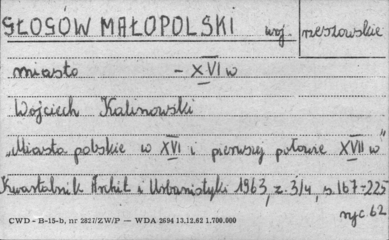 GŁOGÓW MAŁOPOLSKI woj. rzeszowskie
miasto - XVI w
Wojciech Kalinowski
„Miasta polskie w XVI i pierwszej połowie XVII w"
Kwartalnik Archit i Urbanistyki 1963, z. 3/4, s. 167-225
ryc. 62
CWD - B-15-b, nr 2827/ZW/P — WDA 2694 13.12.62 1.700.000